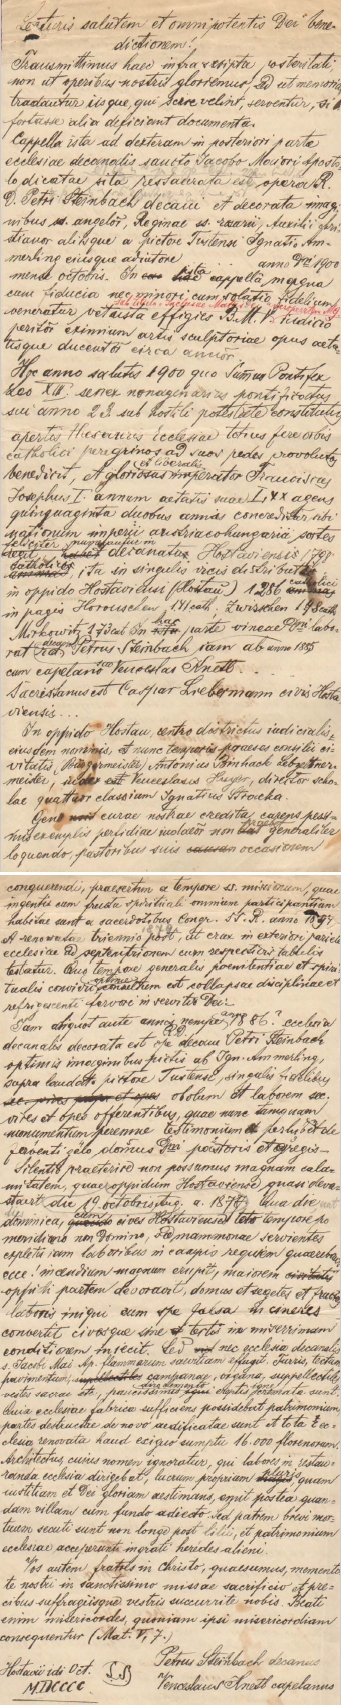 Lecturis salutem et omnipotentis Dei bene-
dictionem!
Transmittimus haec infrascripta posteritati
non ut operibus nostris gloriemur, sed ut memoria
tradantur iisque, qui scire velint, serventur, si
fortasse alia deficiant documenta.
Cappella ista ad dexteram in posteriori parte
ecclesiae decanalis sancto Jacobo Maiori Aposto-
lo dicatae sita restaurata est opera R.
D. Petri Steinbach decani et decorata imagi-
nibus ss. angelor, Reginae ss. rosarii, Auxilii chri-
stianor aliisque a pictore Tustensi Ignatio Am-
merling eiusque adiutore anno Dni 1900
mense octobris. In ista cappella magna
cum fiducia nec minori cum solatio fidelium
veneratur vetusta effigies B. M. V. iudicio
peritor eximium artis sculptoriae opus aeta-
tisque ducentor circa annor.
Hoc anno salutis 1900 quo Summus Pontifex
Leo XIII. senex nonagenarius pontificatus
sui anno 23 sub hostili potestate constitutus
apertis thesauris Ecclesiae totius fere orbis
catholici peregrinos ad suos pedes provolutos
benedicit, et gloriosus imperator Franciscus
Josephus I. annum aetatis suae LXX agens
quinquaginta duobus annis concreditor sibi
nationum imperii austriaco hungarici sortes
decanatus Hostaviensis 1798
catholicos, ita in singulis vicis distributos
in oppido Hostaviensi (Hostau) 1286 catholici
in pagis Horouschen 171 cath. Zwirschen 198 cath.
Mirkowitz 173 cat. In hac parte vineae Dni labo-
rat Petrus Steinbach iam ab anno 1885
cum capelano Venceslao Knetl.
Sacristanus est Caspar Liebermann civis Hosta-
viensis...
In oppido Hostau, centro districtus iudicialis,
eiusdem nominis, et nunc temporis praeses consilii ci-
vitatis, Bürgermeister, Antonius Bimhack
meister, iudex est Venceslaus Huyer, director scho-
lae quattuor classium Ignatius Stracka.
Gens curae nostrae credita, carens pessi-
mis exemplis perfidiae iudaeor non generaliter
loquendo, pastoribus suis occasionem
conquerendi, praesertim a tempore ss. missionum, quae
ingenti cum fructu spirituali omnium participantium
habitae sunt a sacerdotibus Congr. SS. R. anno 1897
et renovatae triennio post, ut crux in exteriori pariete
ecclesiae ad septentrionem cum respectivis tabulis
testatur. Quo tempore generalis poenitentiae et spiri-
tualis convivii est collapsae disciplinae et
refrigescenti fervori in servitio Dei.
Iam aliquot ante annis nempe 1886? ecclesia
decanalis decorata est ope decani Petri Steinbach
optimis imaginibus pictis ab Ign. Ammerling,
supra laudato pictore Tustense, singulis fidelibus
obolum et laborem sec.
vires et opes offerentibus, quae nunc tamquam
monumentum perenne testimonium perhibet de
faventi zelo domus Dni pastoris et gregis.
Silentio praeterire non possumus magnam cala-
mitatem, quae oppidum Hostaviense quasi deva-
stavit die 19 octobris, Aug. a. 1878. Qua die
dominica, cives Hostavienses toto tempore po-
meridiano non Domino, sed mammonae servientes
expleti cum laboribus in campis requiem quaerebant
ecce! incendium magnum erupit, maiorem
oppidi partem devoravit, domus et segetes et fructus
laboris iniqui cum spe falsa in cineres
convertit civesque sine tectis in miserrimam
conditionem iniecit. Sed nec ecclesia decanalis
s. Jacobi Mai. Ap. flammarum saevitiam effugit. Turris, tectum
pavimentum, campanae, organa, suppellectiles
vestis sacrae etc. paucissimis ereptis consumata sunt.
Quia ecclesiae fabrica sufficiens possidebat patrimonium,
partes destructae de novo aedificatae sunt et tota Ec-
clesia renovata haud exiguo sumptu 16.000 florenorum.
Architectus cuius nomen ignoratur, qui labores in restau-
randa ecclesia dirigebat, lucrum proprium pluris quam
iustitiam et Dei gloriam aestimans, emit postea quan-
dam villam cum fundo adiecto. Sed patrem brevi mor-
tuum secuti sunt non longe post liberi, et patrimonium
ecclesiae acceperunt ingrati heredes alieni.
Vos autem, fratres in Christo, quaesumus, memento-
te nostri in sanctissimo missae sacrificio et pre-
cibus suffragiisque vestris succurrite nobis. Beati
enim misericordes, quoniam ipsi misericordiam
consequentur (Mat. V, 7.)
Hostavii idi Oct.
MDCCCC
Petrus Steinbach decanus
Venceslaus Knetl capelanus